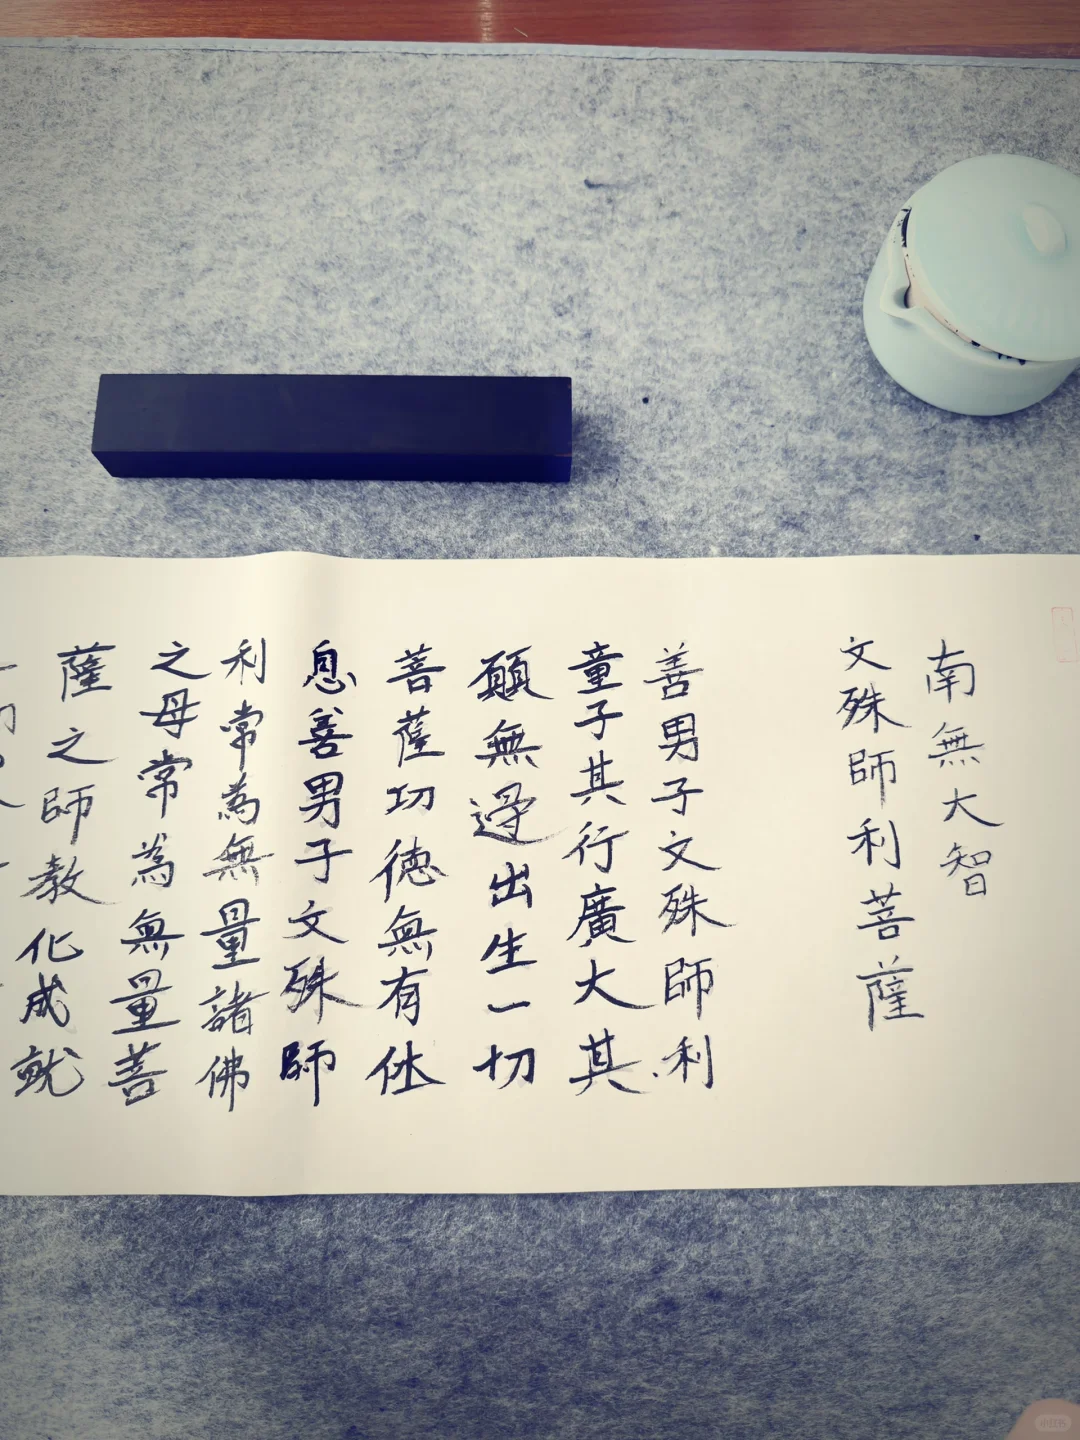 南無大智
文殊師利菩薩
善男子文殊師利
童子其行廣大其
願無邊出生一切
菩薩功德無有休
息善男子文殊師
利常為無量諸佛
之母常為無量菩
薩之師教化成就
小红书